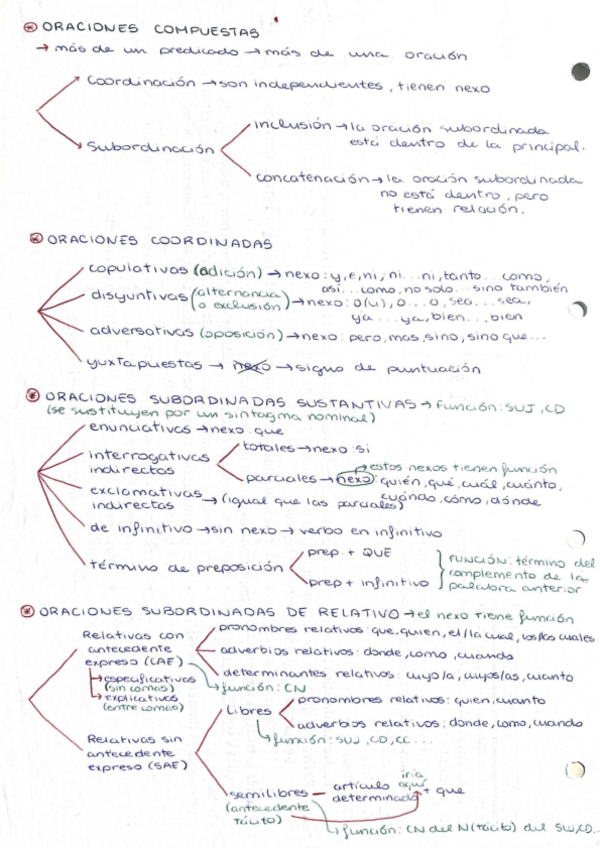 ⊛ ORACIONES COMPUESTAS
→ más de un predicado → más de una oración
Coordinación → son independientes, tienen nexo
Subordinación
inclusión → la oración subordinada
está dentro de la principal.
concatenación → la oración subordinada
no está dentro, pero
tienen relación.
⊛ ORACIONES COORDINADAS
copulativas (adición) → nexo: y, e, ni, ni...ni, tanto... como,
así... como, no solo... sino también
disyuntivas (alternancia o exclusión) → nexo: o(u), o...o, sea... sea,
ya... ya, bien... bien
adversativas (oposición) → nexo: pero, mas, sino, sino que...
yuxtapuestas → nexo → signo de puntuación
⊛ ORACIONES SUBORDINADAS SUSTANTIVAS → función: SUJ, CD
(se sustituyen por un sintagma nominal)
enunciativas → nexo: que
interrogativas
indirectas
totales → nexo: si
estos nexos tienen función
parciales → nexo: quién, qué, cuál, cuánto,
cuándo, cómo, dónde
exclamativas
indirectas → (igual que las parciales)
de infinitivo → sin nexo → verbo en infinitivo
término de preposición
prep. + QUE
prep + infinitivo
FUNCIÓN: término del
complemento de la
palabra anterior
⊛ ORACIONES SUBORDINADAS DE RELATIVO → el nexo tiene función
Relativas con
antecedente
expreso (CAE)
→ especificativas
(sin comas)
→ explicativas
(entre comas)
pronombres relativos: que, quien, el/la cual, los/las cuales
adverbios relativos: donde, como, cuando
determinantes relativos: cuyo/a, cuyos/as, cuanto
función: CN
Relativas sin
antecedente
expreso (SAE)
Libres
pronombres relativos: quien, cuanto
adverbios relativos: donde, como, cuando
función: SUJ, CD, CC...
semilibres
(antecedente
tácito)
artículo
determinado
iría
aquí
+ que
función: CN del N(tácito) del SUJ, CD...